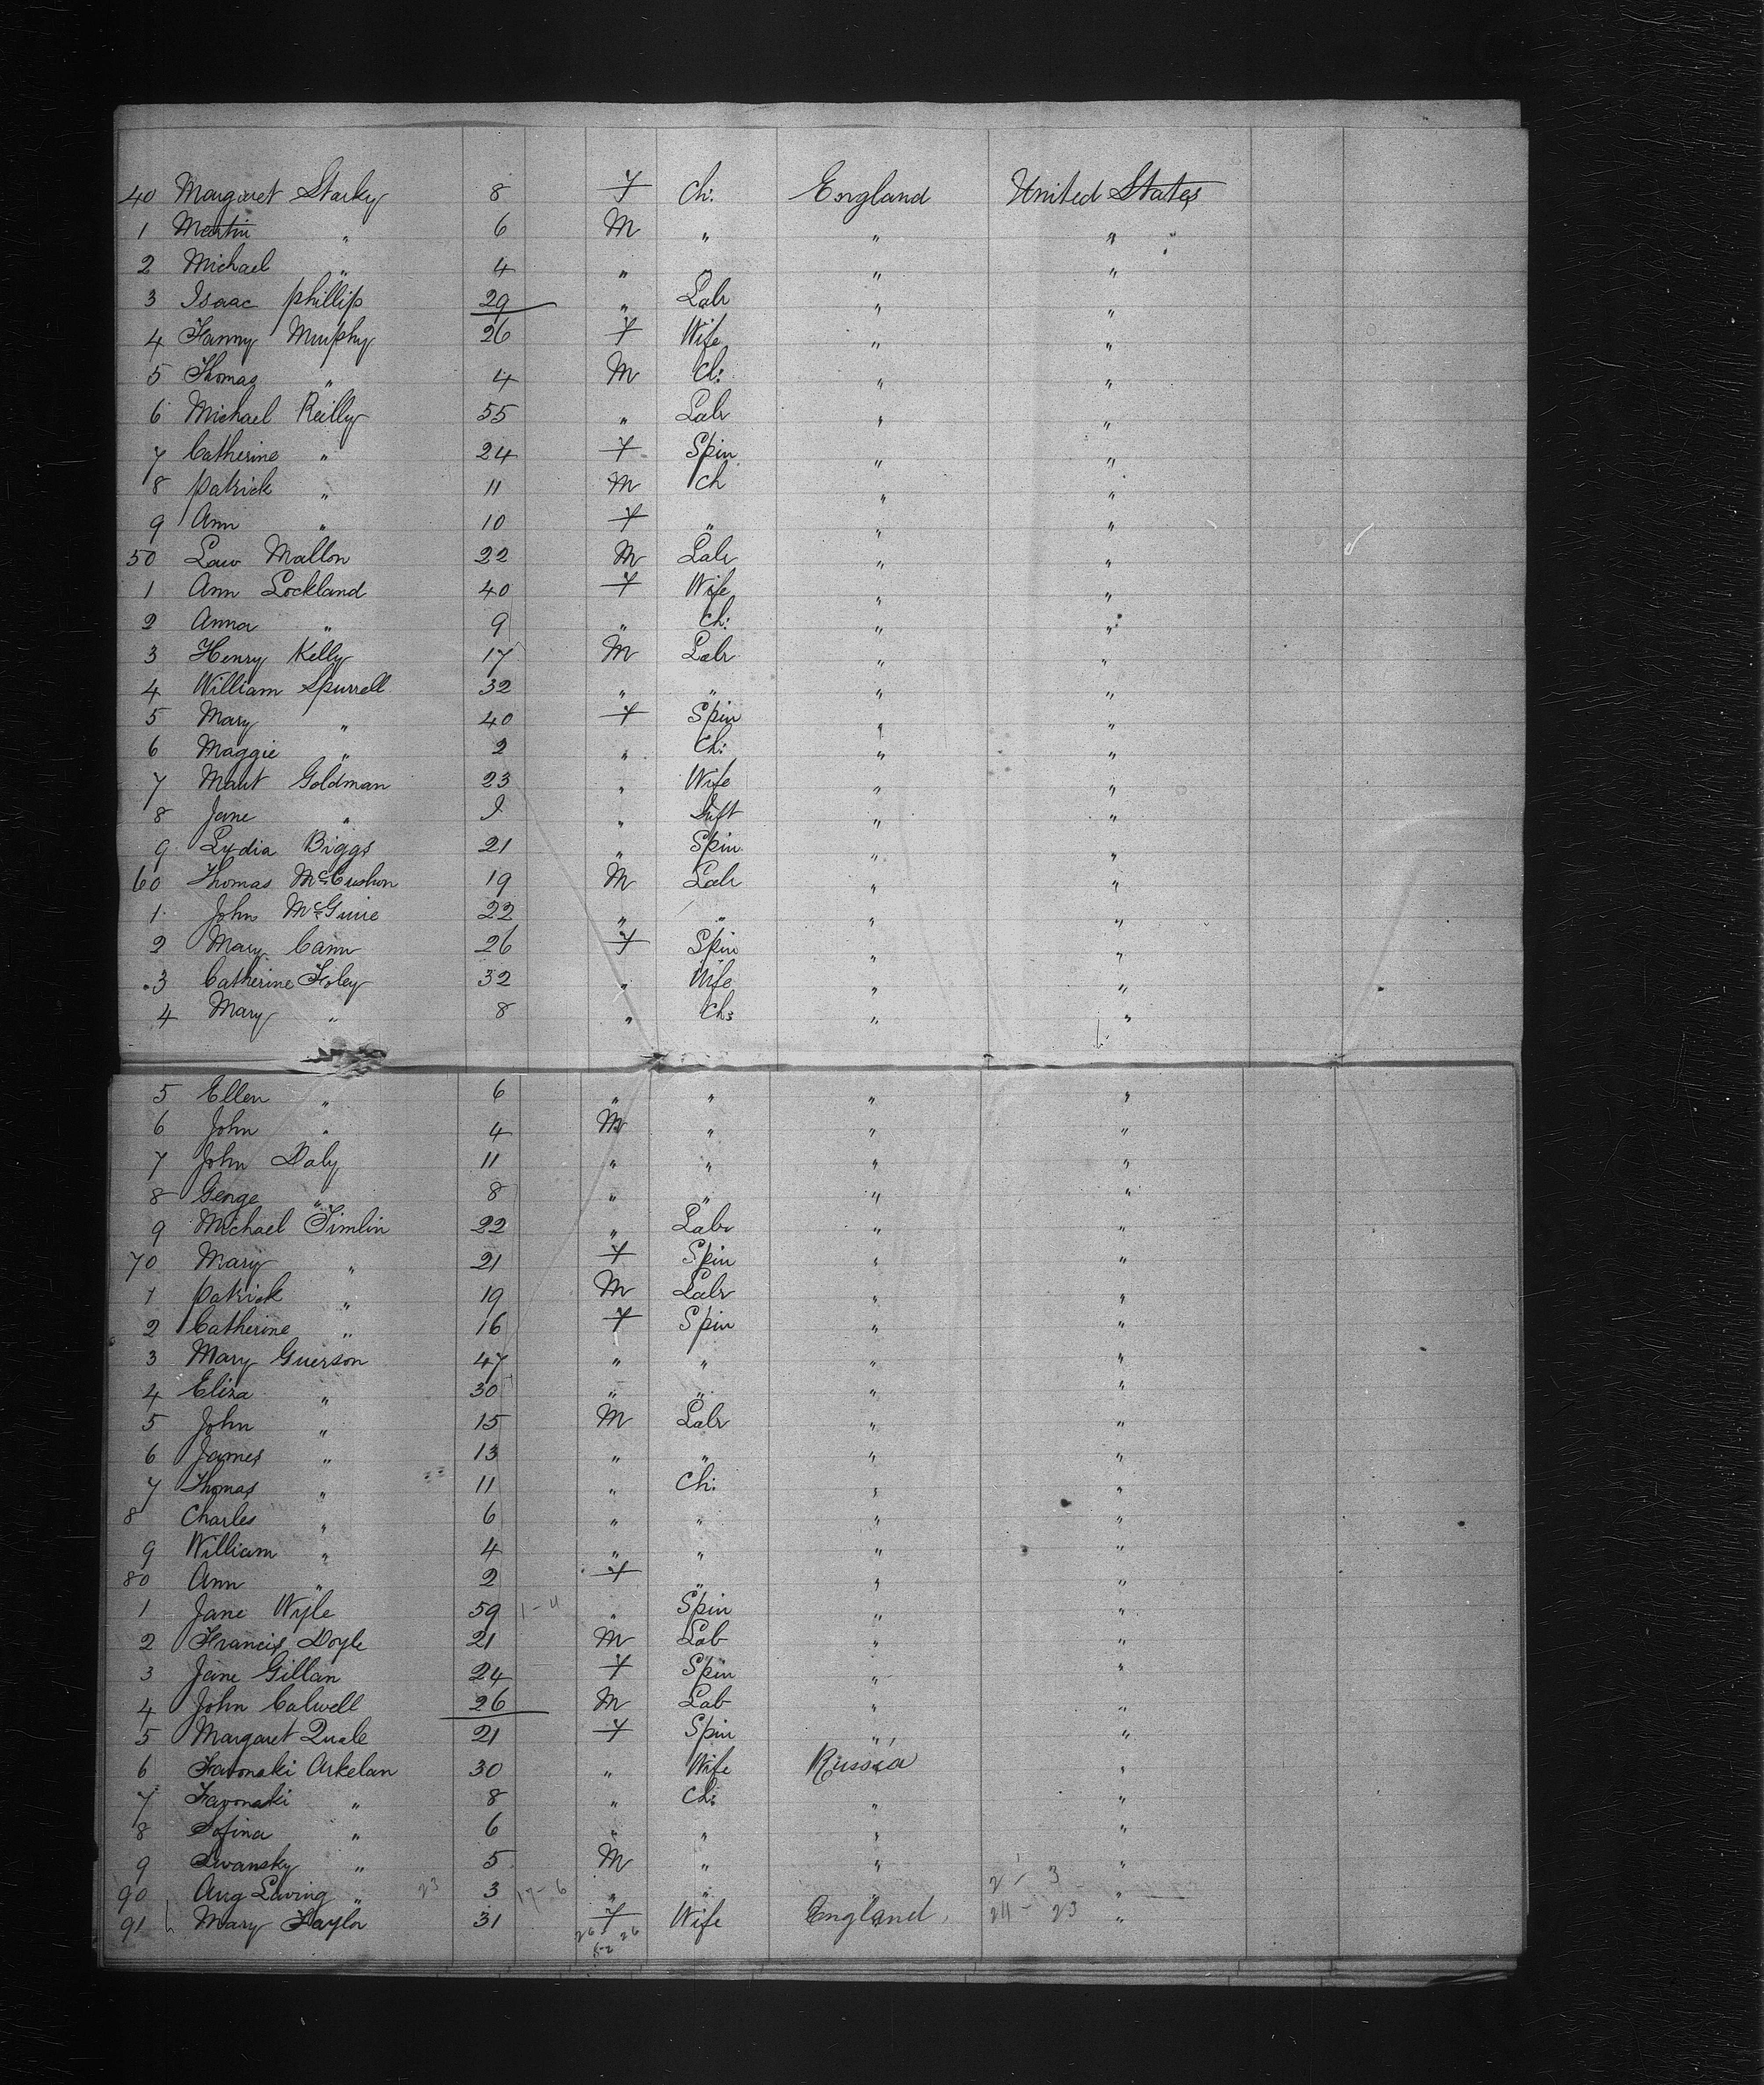 40 Margaret Starkey 8 F Ch: England United States
1 Martin " 6 M " " "
2 Michael " 4 " " " "
3 Isaac Phillip 29 " Labr " "
4 Fanny Murphy 26 F Wife " "
5 Thomas " 4 M Ch: " "
6 Michael Reilly 55 " Labr " "
7 Catherine " 24 F Spin " "
8 Patrick " 11 M Ch " "
9 Ann " 10 F " " "
50 Law Mallon 22 M Labr " "
1 Ann Lockland 40 F Wife " "
2 Anna " 9 " Ch: " "
3 Henry Kelly 17 M Labr " "
4 William Spurrell 32 " " " "
5 Mary " 40 F Spin " "
6 Maggie " 2 " Ch: " "
7 Goldman 23 " Wife " "
8 Jane " " " "
9 Lydia Biggs 21 " Spin " "
60 Thomas 19 M Labr " "
1 John McGuire 22 " " " "
2 Mary Cann 26 F Spin " "
3 Catherine Foley 32 " Wife " "
4 Mary " 8 " Ch: " "
5 Ellen " 6 " " " "
6 John " 4 M " " "
7 John Daly 11 " " " "
8 George " 8 " " " "
9 Michael Timlin 22 " Labr " "
70 Mary " 21 F Spin " "
1 Patrick " 19 M Labr " "
2 Catherine " 16 F Spin " "
3 Mary Guerson 47 " " " "
4 Eliza " 30 " " " "
5 John " 15 M Labr " "
6 James " 13 " " " "
7 Thomas " 11 " Ch: " "
8 Charles " 6 " " " "
9 William " 4 " " " "
80 Ann " 2 F " " "
1 Jane Wyle 59 " Spin " "
2 Francis Doyle 21 M Lab " "
3 Jane Gillan 24 F Spin " "
4 John Calwell 26 M Lab " "
5 Margaret Quale 21 F Spin " "
6 Arkelan 30 " Wife Russia "
7 " 8 " Ch: " "
8 Sofina " 6 " " " "
9 " 5 M " " "
90 Aug " 3 " " " "
91 Mary Taylor 31 F Wife England "